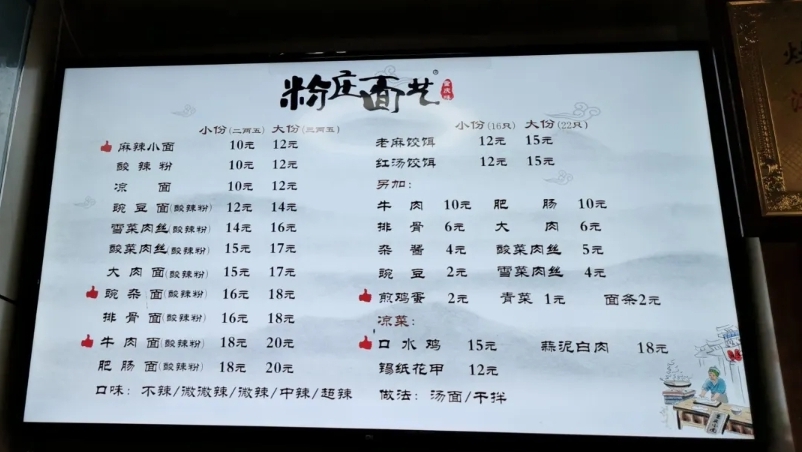 粉庄面艺
小份(二两五) 大份(三两五)
麻辣小面 10元 12元
酸辣粉 10元 12元
凉面 10元 12元
豌豆面(酸辣粉) 12元 14元
雪菜肉丝(酸辣粉) 14元 16元
酸菜肉丝(酸辣粉) 15元 17元
大肉面(酸辣粉) 15元 17元
豌杂面(酸辣粉) 16元 18元
排骨面(酸辣粉) 16元 18元
牛肉面(酸辣粉) 18元 20元
肥肠面(酸辣粉) 18元 20元
口味：不辣/微微辣/微辣/中辣/超辣
小份(16只) 大份(22只)
老麻饺饵 12元 15元
红汤饺饵 12元 15元
另加：
牛肉 10元 肥肠 10元
排骨 6元 大肉 6元
杂酱 4元 酸菜肉丝 5元
豌豆 2元 雪菜肉丝 4元
煎鸡蛋 2元 青菜 1元 面条2元
凉菜：
口水鸡 15元 蒜泥白肉 18元
锡纸花甲 12元
做法：汤面/干拌